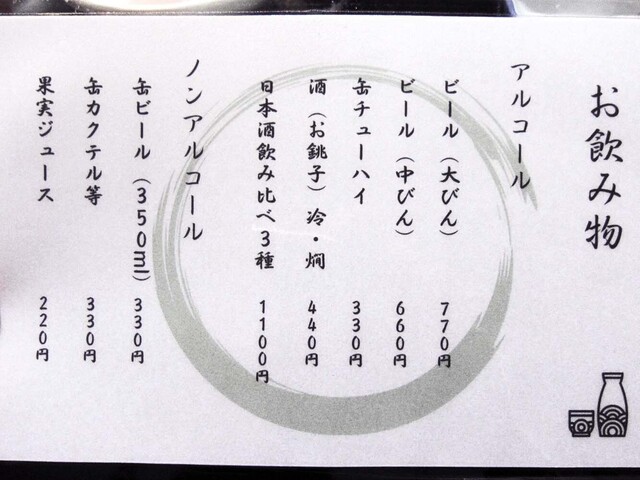 お飲み物
アルコール
ビール（大びん） 770円
ビール（中びん） 660円
缶チューハイ 330円
酒（お銚子）冷・燗 440円
日本酒飲み比べ3種 1100円
ノンアルコール
缶ビール（350ml） 330円
缶カクテル等 330円
果実ジュース 220円